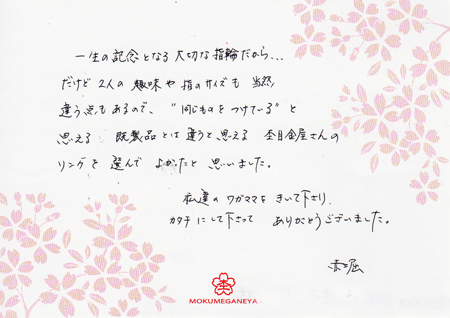 一生の記念となる大切な指輪だから...
だけど2人の趣味や指のサイズも当然
違う点もあるので、"同じものをつけている"と
思える 既製品とは違うと思える 杢目金屋さんの
リングを選んで よかったと 思いました。
私達のワガママをきいて下さり、
カタチにして下さって ありがとうございました。
赤堀
MOKUMEGANEYA